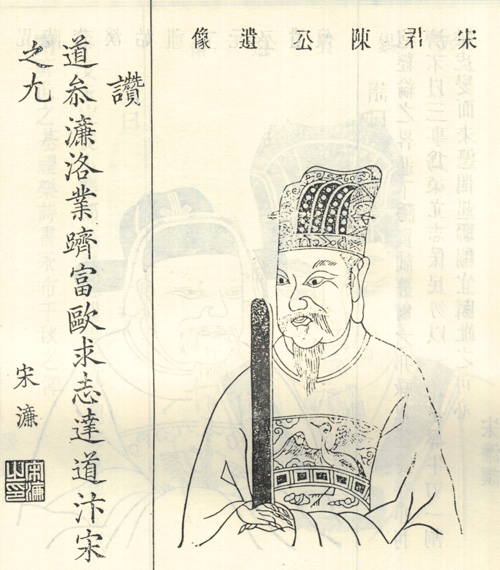 宋君陳公遺像
讚
道叅濂洛業躋富歐求志達道汴宋
之尤
宋濂
宋濂
之印